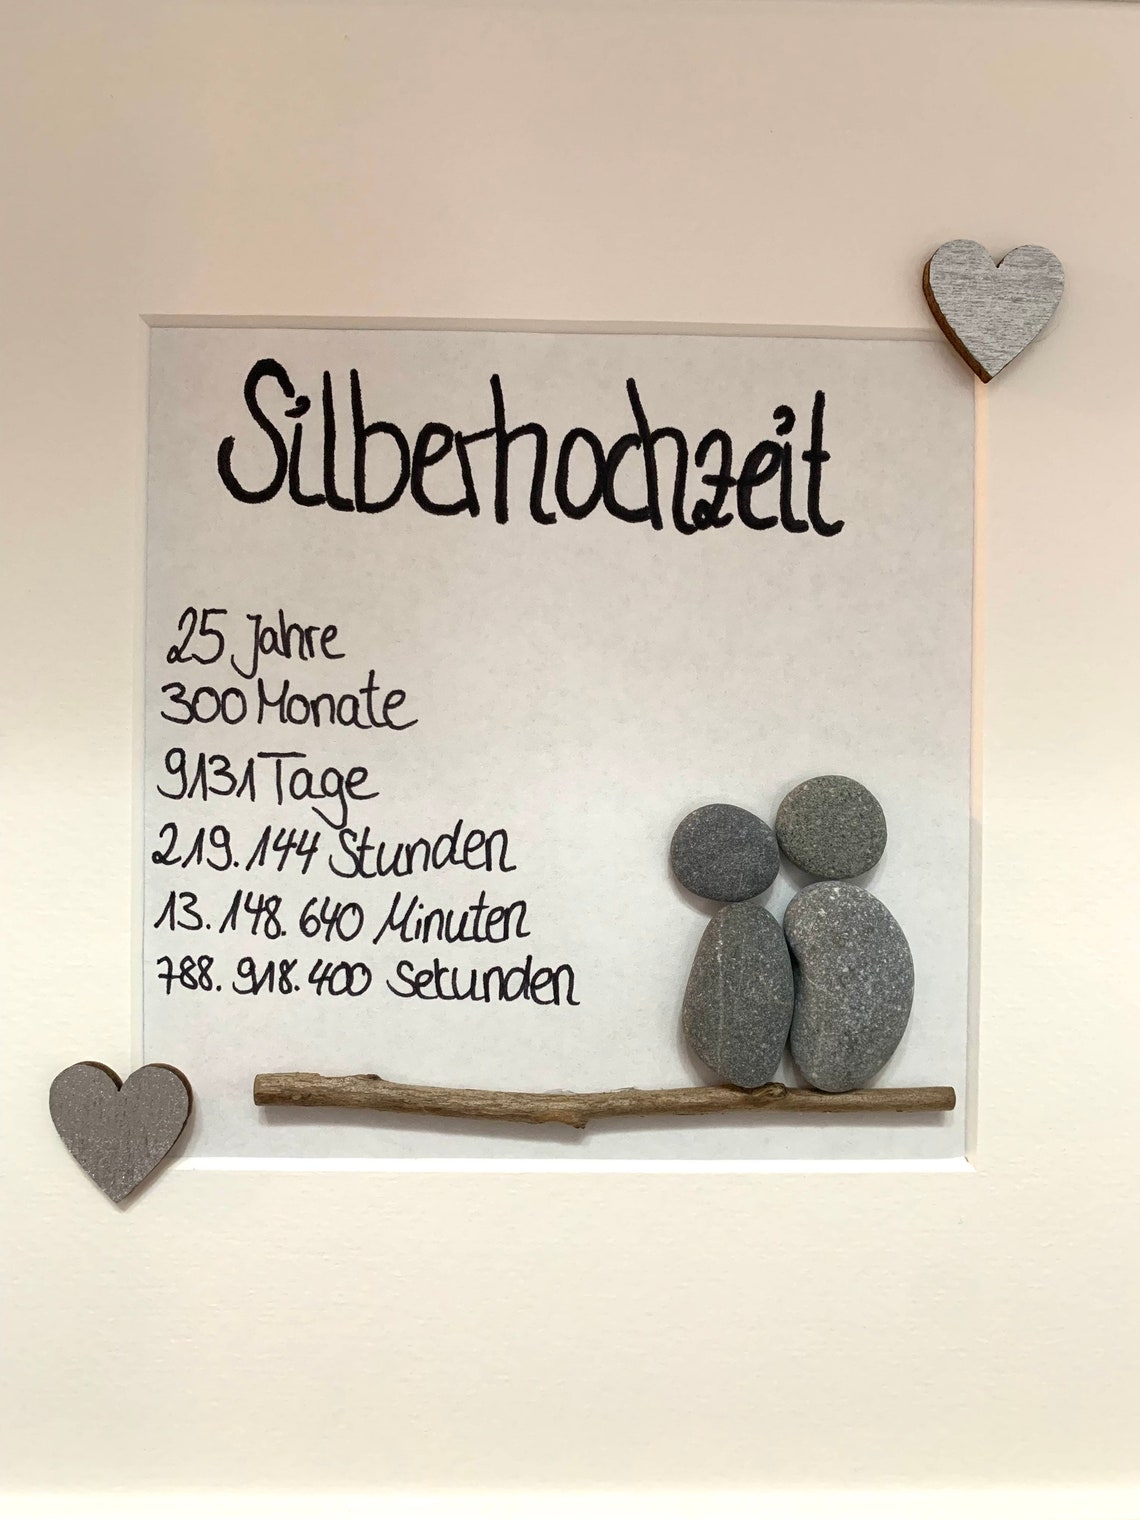 Silberhochzeit
25 Jahre
300 Monate
9131 Tage
219.144 Stunden
13.148.640 Minuten
788.918.400 Sekunden